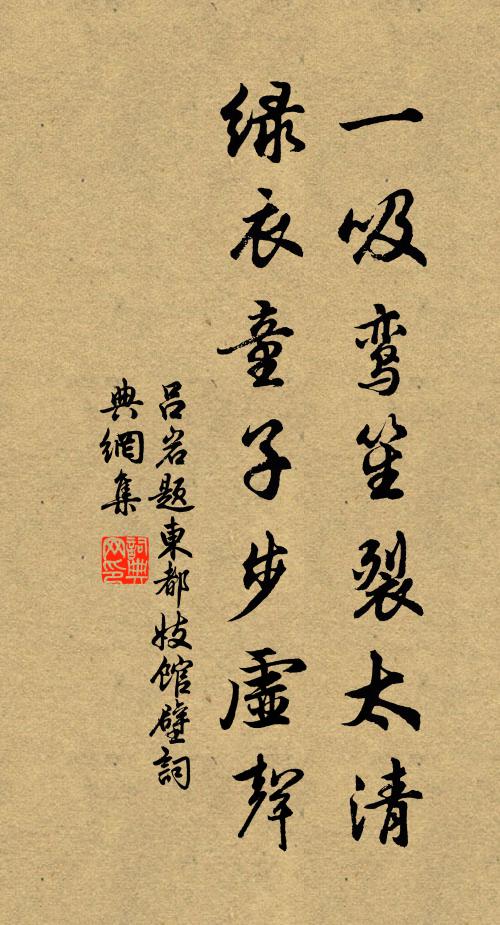 一吸鸾笙裂太清
绿衣童子步虚聲
吕岩题東都妓馆壁詞
典網集
詞典网印